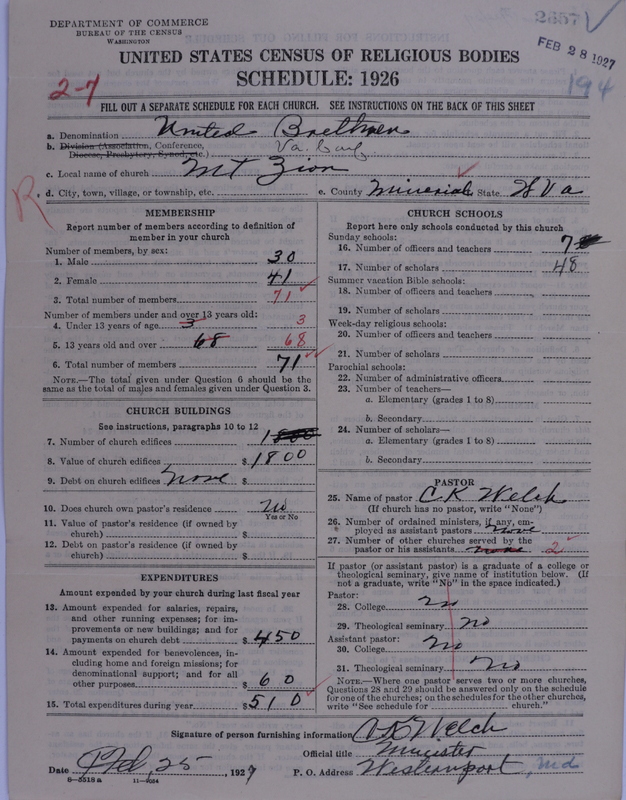 DEPARTMENT OF COMMERCE
BUREAU OF THE CENSUS
WASHINGTON
FEB 28 1927
194
UNITED STATES CENSUS OF RELIGIOUS BODIES
SCHEDULE: 1926
2-7
FILL OUT A SEPARATE SCHEDULE FOR EACH CHURCH. SEE INSTRUCTIONS ON THE BACK OF THIS SHEET
a. Denomination United Brethren
b. Division (Association, Conference, Diocese, Presbytery, Synod, etc.) Va. Conf
c. Local name of church Mt Zion
R
d. City, town, village, or township, etc. e. County Mineral State W Va
MEMBERSHIP
Report number of members according to definition of member in your church
Number of members, by sex:
1. Male 30
2. Female 41
3. Total number of members 71
Number of members under and over 13 years old:
4. Under 13 years of age 3 3
5. 13 years old and over 68 68
6. Total number of members 71
NOTE.—The total given under Question 6 should be the same as the total of males and females given under Question 3.
CHURCH BUILDINGS
See instructions, paragraphs 10 to 12
7. Number of church edifices 1
8. Value of church edifices $1800
9. Debt on church edifices none $
10. Does church own pastor's residence no
Yes or No
11. Value of pastor's residence (if owned by church) $
12. Debt on pastor's residence (if owned by church) $
EXPENDITURES
Amount expended by your church during last fiscal year
13. Amount expended for salaries, repairs, and other running expenses; for improvements or new buildings; and for payments on church debt $450
14. Amount expended for benevolences, including home and foreign missions; for denominational support; and for all other purposes $60
15. Total expenditures during year $510
CHURCH SCHOOLS
Report here only schools conducted by this church
Sunday schools:
16. Number of officers and teachers 7
17. Number of scholars 48
Summer vacation Bible schools:
18. Number of officers and teachers
19. Number of scholars
Week-day religious schools:
20. Number of officers and teachers
21. Number of scholars
Parochial schools:
22. Number of administrative officers
23. Number of teachers—
a. Elementary (grades 1 to 8)
b. Secondary
24. Number of scholars—
a. Elementary (grades 1 to 8)
b. Secondary
PASTOR
25. Name of pastor C. K. Welch
(If church has no pastor, write "None")
26. Number of ordained ministers, if any, employed as assistant pastors none
27. Number of other churches served by the pastor or his assistants none 2
If pastor (or assistant pastor) is a graduate of a college or theological seminary, give name of institution below. (If not a graduate, write "No" in the space indicated.)
Pastor:
28. College no
29. Theological seminary no
Assistant pastor:
30. College No
31. Theological seminary No
NOTE.—Where one pastor serves two or more churches, Questions 28 and 29 should be answered only on the schedule for one of the churches; on the schedules for the other churches, write "See schedule for ........ church."
Signature of person furnishing information C. K. Welch
Official title Minister
Date Feb, 25, 1927 P. O. Address Westernport, Md
8—5518a 11—9024